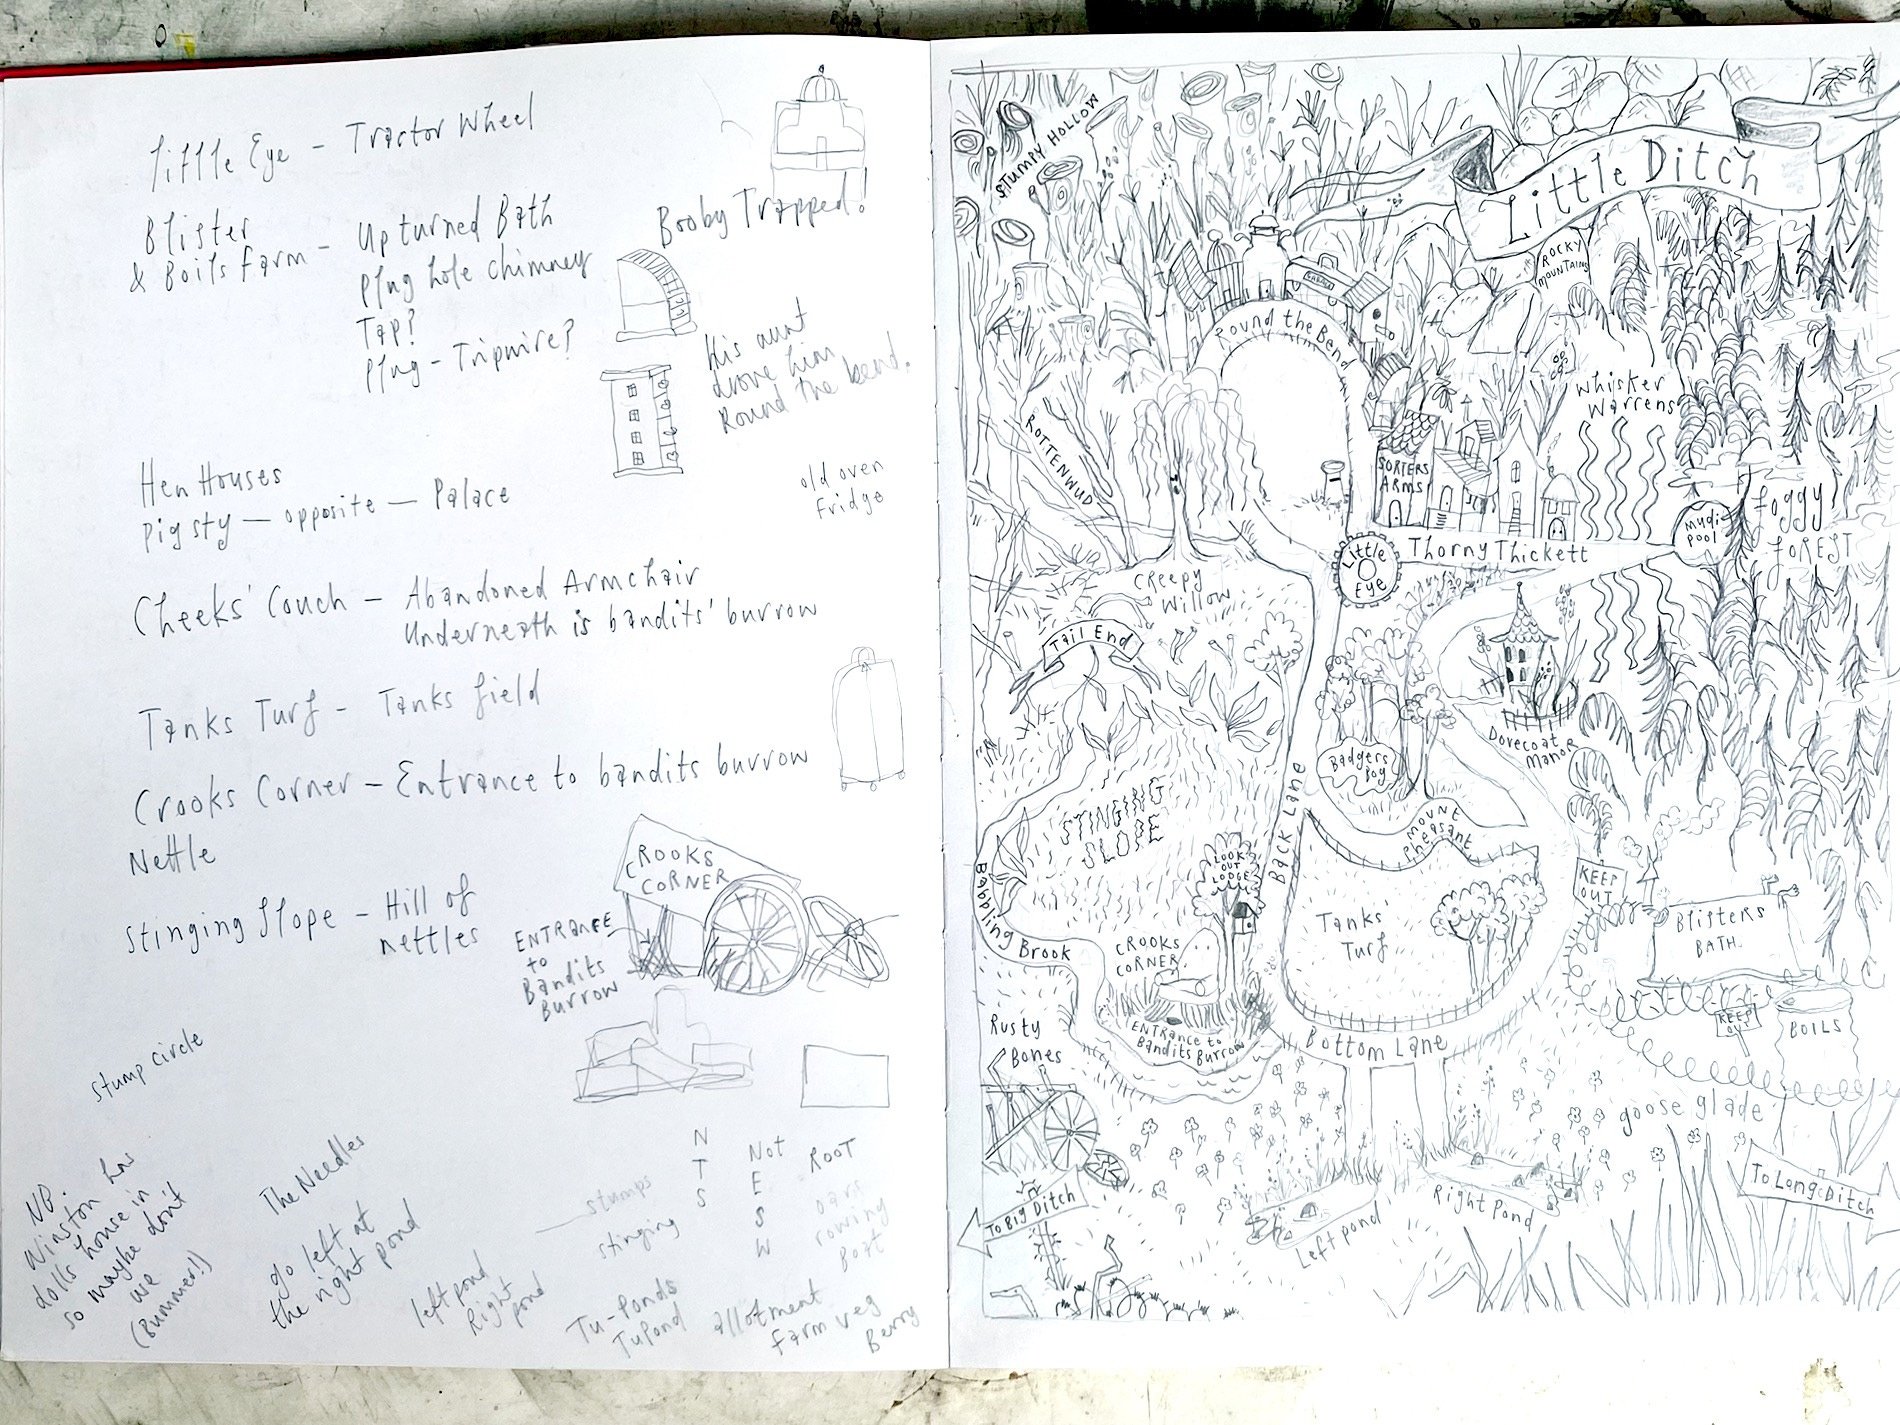 Little Eye - Tractor Wheel
Blister
& Boils Farm - Upturned Bath
Plug hole chimney
Tap?
Plug - Tripwire?
Booby Trapped!
His aunt
drove him
Round the bend.
old oven
Fridge
Hen Houses
Pigsty - opposite - Palace
Cheeks' Couch - Abandoned Armchair
Underneath is bandits' burrow
Tanks Turf - Tanks field
Crooks Corner - Entrance to bandits burrow
Nettle
Stinging Slope - Hill of
nettles
CROOKS
CORNER
ENTRANCE
to
Bandits
Burrow
stump circle
NB.
Winston has
dolls house in
so maybe don't
use
(Bummer!)
The Needles
go left at
the right pond
left pond
Right
pond
stumps
stinging
N
T
S
Not
E
S
W
ROOT
oars
rowing
boat
Tu-Ponds
TuPond
allotment
farm veg
Berry
Little Ditch
STUMPY HOLLOW
ROCKY
MOUNTAINS
Round the Bend
Whisker
Warrens
ROTTENWUD
SORTERS
ARMS
Mudi
pool
foggy
FOREST
Little
Eye
Thorny Thickett
Creepy
Willow
Tail End
Dovecoat
Manor
Badgers
Bog
STINGING
SLOPE
Back Lane
MOUNT
Pheasant
LOOK
OUT
LODGE
KEEP
OUT
Blisters
BATH
Tanks
Turf
Babbling Brook
CROOKS
CORNER
ENTRANCE to
Bandits Burrow
Rusty
Bones
Bottom Lane
KEEP
OUT
BOILS
goose glade
To Big Ditch
Left pond
Right Pond
To Long Ditch